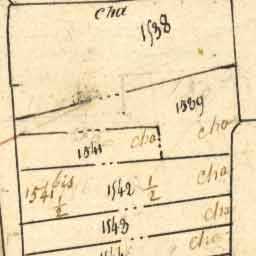 cha
1538
1539
cha
1541 cha
1541 bis ½
1542 ½ cha
1543 cha
1544 cha